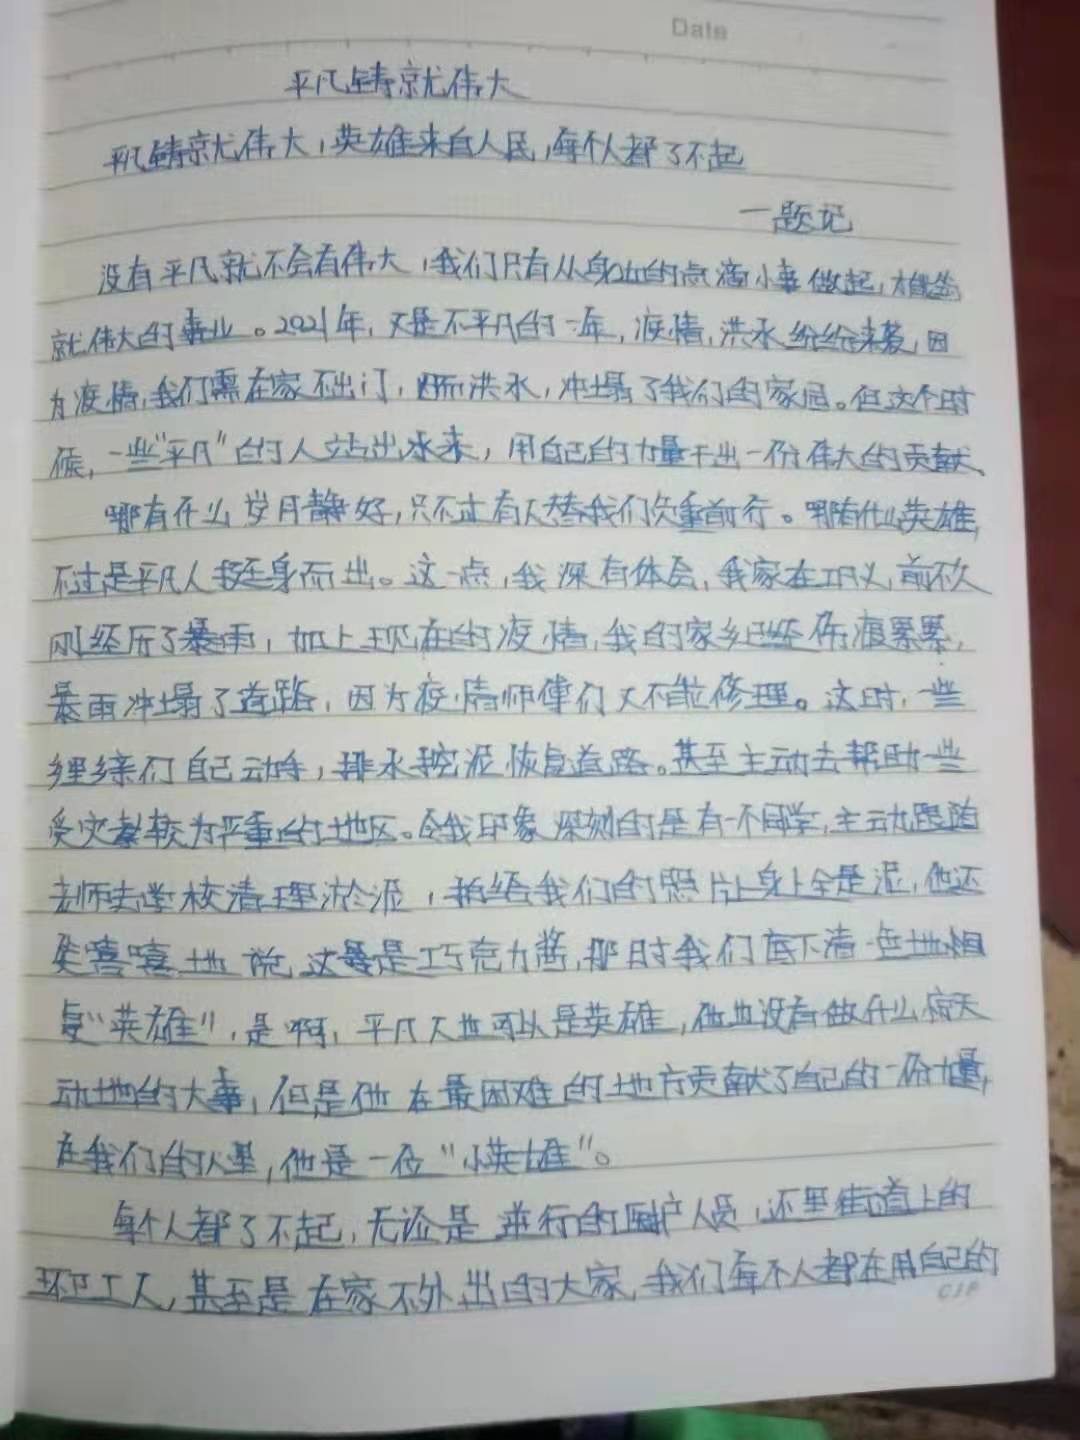 Date
平凡铸就伟大
平凡铸就伟大，英雄来自人民，每个人都了不起
一题记
没有平凡就不会有伟大，我们只有从身边的点滴小事做起，才能铸
就伟大的事业。2021年，又是不平凡的一年，疫情，洪水纷纷来袭，因
为疫情，我们需在家不出门，因而洪水，冲塌了我们的家园。但这个时
候，一些"平凡"的人站出来，用自己的力量干出一份伟大的贡献。
哪有什么岁月静好，只不过有人替我们负重前行。哪有什么英雄，
不过是平凡人挺身而出。这一点，我深有体会，我家在巩义，前不久
刚经历了暴雨，加上现在的疫情，我的家乡已经伤痕累累，
暴雨冲塌了道路，因为疫情师傅们又不能修理。这时，一些
乡里乡亲们自己动手，排水挖泥恢复道路。甚至主动去帮助一些
受灾较为严重的地区。令我印象深刻的是有一个同学，主动跟随
老师去学校清理淤泥，拍给我们的照片上身上全是泥，他还
笑嘻嘻地说，这是巧克力酱，那时我们底下清一色地回
复"英雄"，是啊，平凡人也可以是英雄，他也没有做什么惊天
动地的大事，但是他在最困难的地方贡献了自己的一份力量，
在我们的心里，他是一名"小英雄"。
每个人都了不起，无论是逆行的医护人员，还是街道上的
环卫工人，甚至是在家不外出的大家，我们每个人都在用自己的